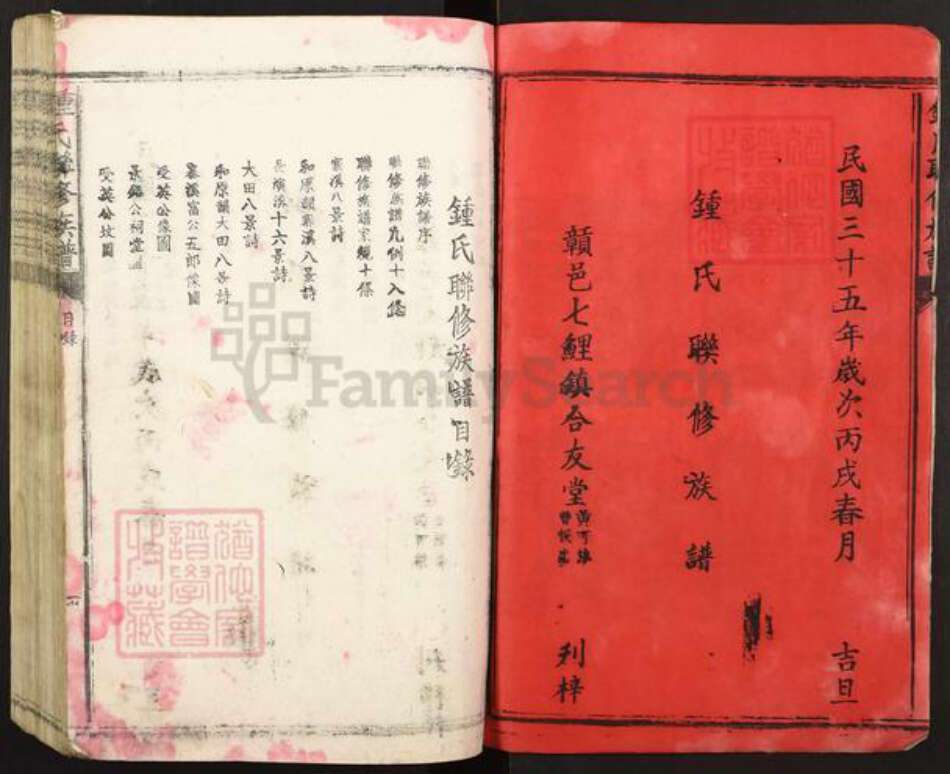 民國三十五年歲次丙戌春月 吉旦
鍾氏聯修族譜
贛邑七鯉鎮合友堂 刋梓
鍾氏聯修族譜目錄
聯修族譜序
聯修族譜凡例十八條
聯修族譜家規十條
寨溪八景詩
和原韻寨溪八景詩
長演溪十六景詩
大田八景詩
和原韻大田八景詩
寨溪富公五郎像圖
受英公像圖
公祠堂
受英公坟圖
鍾氏聯修族譜
目錄
猶他家譜學會收藏
FamilySearch